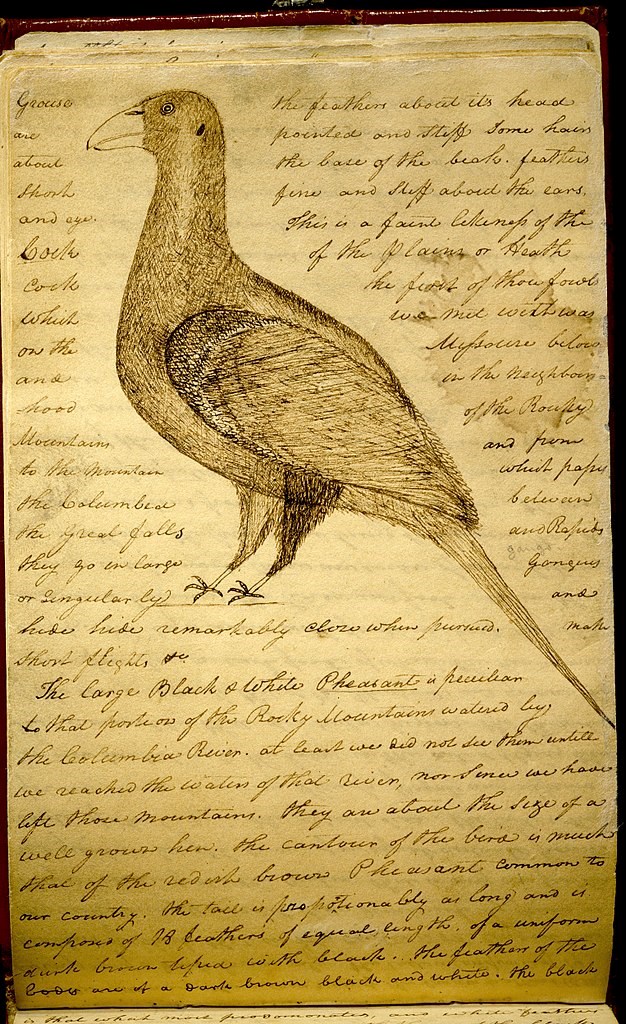 Grouse the feathers about its head
are pointed and stiff Some hairs
about the base of the beak. feathers
Short fine and stiff about the ears,
and eye. This is a faint likeness of the
Cock of the Plains or Heath
cock the first of those fowls
which we met with was
on the Missoure below
and in the neighbour=
hood of the Rocky
Mountains and from
to the Mountain which pass
the Columbia between
the Great falls and Rapids
they go in large Gangues
or Singularly and
hide hide remarkably close when pursued. make
Short flights &c
The large Black & White Pheasant is peculiar
to that portion of the Rocky Mountains watered by
the Columbia River. at least we did not see them untill
we reached the waters of that river, nor Since we have
left those Mountains. they are about the Size of a
well grown hen. the contour of the bird is much
that of the redish brown Pheasant common to
our country. the tail is proportionably as long and is
composed of 18 feathers of equal length. of a uniform
dark brown tiped with black. the feathers of the
body are of a dark brown black and white. the black